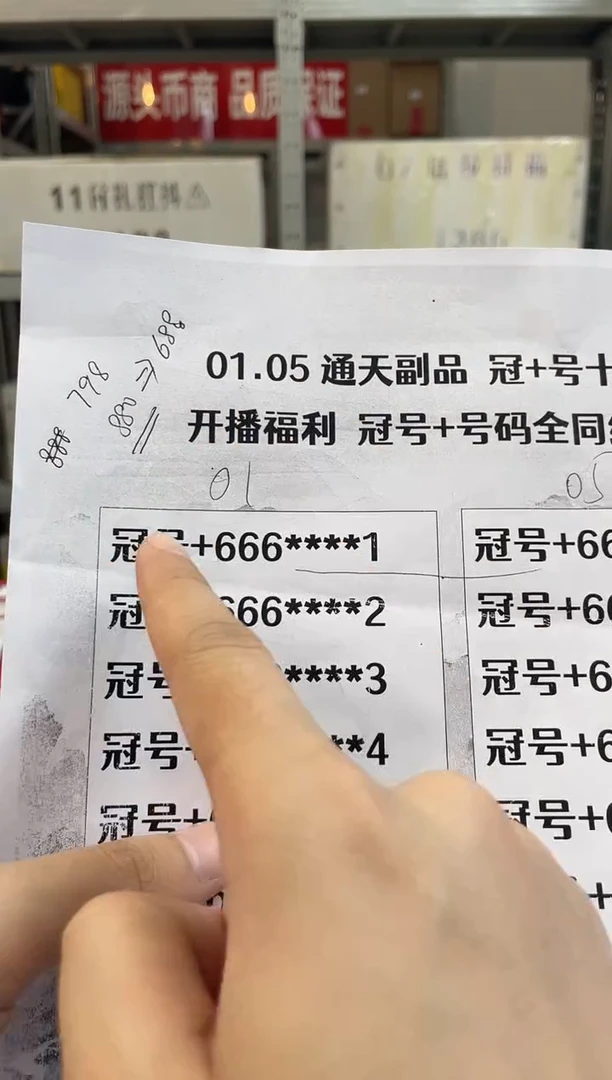 源头币商 品质保证
688
798
880 ⇒
01.05 通天副品 冠+号十
开播福利 冠号+号码全同
01
05
冠号+666****1
冠号+66
666****2
冠号+66
冠号 ****3
冠号+6
冠号 **4
冠号+6
冠号+
号+
+